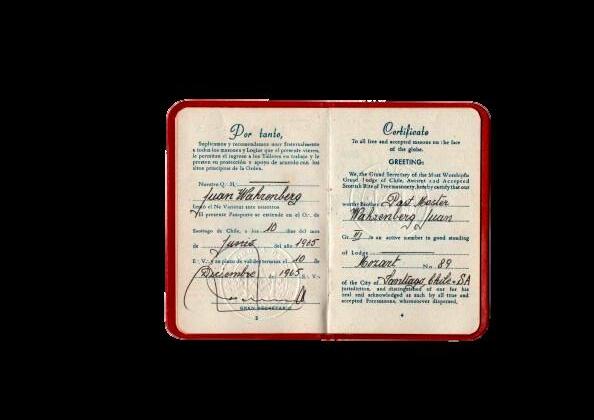 Por tanto,
Suplicamos y recomendamos muy fraternalmente
a todos los masones y Logias que el presente vieren,
le permitan el ingreso a los Talleres en trabajo y le
presten su protección y apoyo de acuerdo con los
altos principios de la Orden.
Nuestro Q∴ H∴
Juan Wahrenberg
firmó el Ne Varietur ante nosotros
El presente Pasaporte se extiende en el Or∴ de
Santiago de Chile, a los 10 días del mes
de Junio del año 1965
E∴ V∴ y su plazo de validez termina el 10 de
Diciembre de 1965 E∴ V∴
GRAN SECRETARIO
3
Certificate
To all free and accepted masons on the face
of the globe.
GREETING:
We, the Grand Secretary of the Most Worshipful
Grand Lodge of Chile, Ancient and Accepted
Scottish Rite of Freemasonry, hereby certify that our
worthy Brother Past Master
Wahrenberg Juan
Gr. III is an active member in good standing
of Lodge
Mozart No. 89
of the City of Santiago, Chile - SA
jurisdiction, and distinguished of our for his
zeal and acknowledged as such by all true and
accepted Freemasons, whereever dispersed,
4